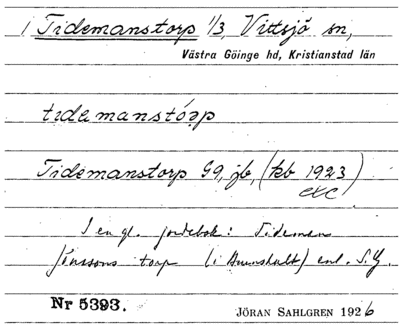 1 Tidemanstorp 1/3, Vittsjö sn,
Västra Göinge hd, Kristianstad län
tidemanstórp
Tidemanstorp G9, jb, (kb 1923)
etc
I en gl. jordebok: Tideman
Jönssons torp (i Emmaljunga) enl. S.G.
Nr 5393.
JÖRAN SAHLGREN 1926